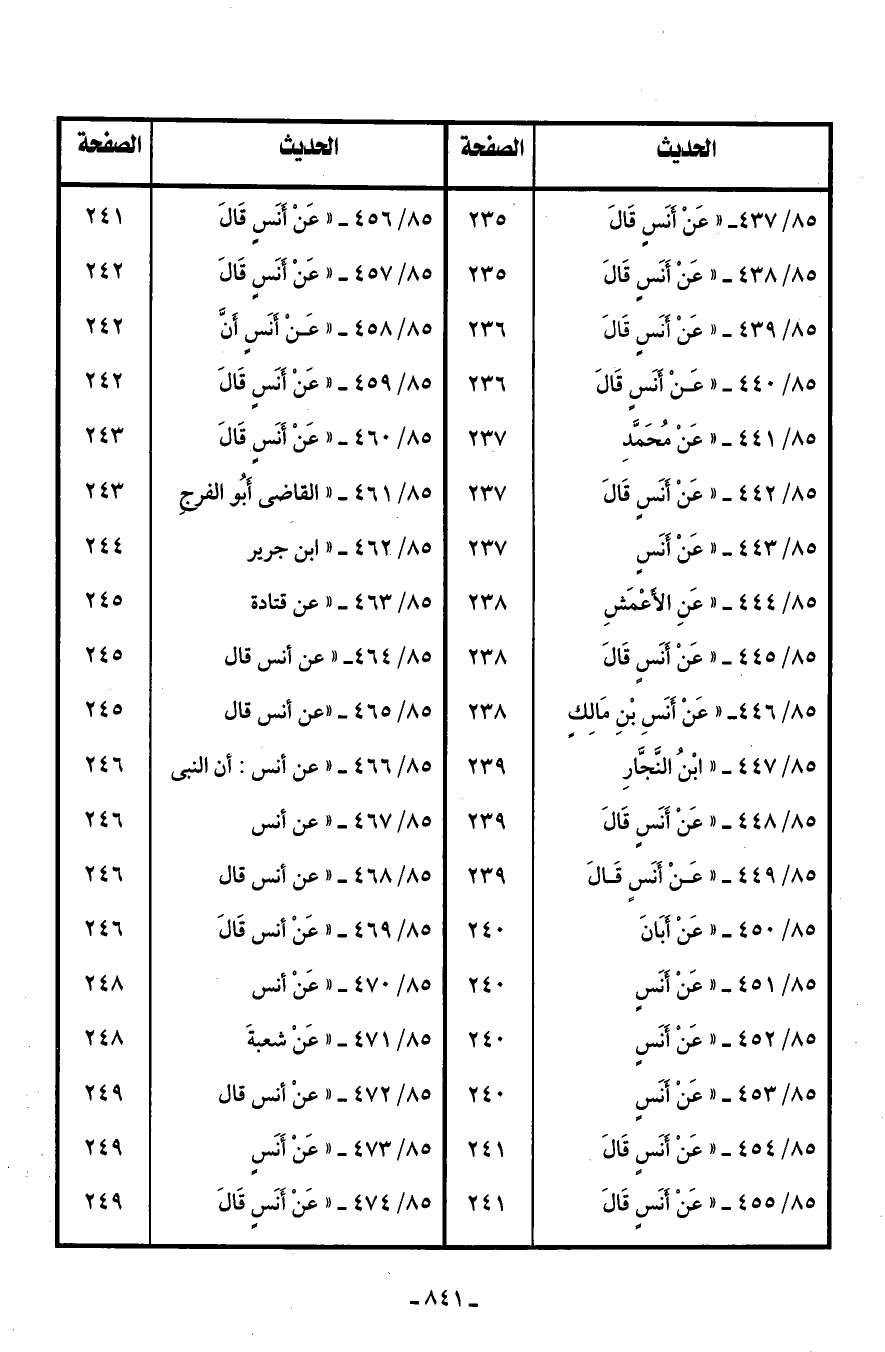 الحديث الصفحة الحديث الصفحة
٨٥/ ٤٣٧ـ « عَنْ أَنَسٍ قَالَ ٢٣٥ ٨٥/ ٤٥٦ ـ « عَنْ أَنَسٍ قَالَ ٢٤١
٨٥/ ٤٣٨ ـ « عَنْ أَنَسٍ قَالَ ٢٣٥ ٨٥/ ٤٥٧ ـ « عَنْ أَنَسٍ قَالَ ٢٤٢
٨٥/ ٤٣٩ ـ « عَنْ أَنَسٍ قَالَ ٢٣٦ ٨٥/ ٤٥٨ ـ « عَـنْ أَنَسٍ أَنَّ ٢٤٢
٨٥/ ٤٤٠ ـ « عَـنْ أَنَسٍ قَالَ ٢٣٦ ٨٥/ ٤٥٩ ـ « عَنْ أَنَسٍ قَالَ ٢٤٢
٨٥/ ٤٤١ ـ « عَنْ مُحَمَّدٍ ٢٣٧ ٨٥/ ٤٦٠ ـ « عَنْ أَنَسٍ قَالَ ٢٤٣
٨٥/ ٤٤٢ ـ « عَنْ أَنَسٍ قَالَ ٢٣٧ ٨٥/ ٤٦١ ـ « القاضى أَبُو الفرجِ ٢٤٣
٨٥/ ٤٤٣ ـ « عَنْ أَنَسٍ ٢٣٧ ٨٥/ ٤٦٢ ـ « ابن جرير ٢٤٤
٨٥/ ٤٤٤ ـ « عَنِ الأَعْمَشِ ٢٣٨ ٨٥/ ٤٦٣ ـ « عن قتادة ٢٤٥
٨٥/ ٤٤٥ ـ « عَنْ أَنَسٍ قَالَ ٢٣٨ ٨٥/ ٤٦٤ـ « عن أنس قال ٢٤٥
٨٥/ ٤٤٦ـ « عَنْ أَنَسِ بْنِ مَالِكٍ ٢٣٨ ٨٥/ ٤٦٥ ـ «عن أنس قال ٢٤٥
٨٥/ ٤٤٧ ـ « ابْنُ النَّجَّارِ ٢٣٩ ٨٥/ ٤٦٦ ـ « عن أنس : أن النبى ٢٤٦
٨٥/ ٤٤٨ ـ « عَنْ أَنَسٍ قَالَ ٢٣٩ ٨٥/ ٤٦٧ ـ « عن أنس ٢٤٦
٨٥/ ٤٤٩ ـ « عَـنْ أَنَسٍ قَـالَ ٢٣٩ ٨٥/ ٤٦٨ ـ « عن أنس قال ٢٤٦
٨٥/ ٤٥٠ ـ « عَنْ أَبَانَ ٢٤٠ ٨٥/ ٤٦٩ ـ « عَنْ أنس قَالَ ٢٤٦
٨٥/ ٤٥١ ـ « عَنْ أَنَسٍ ٢٤٠ ٨٥/ ٤٧٠ ـ « عَنْ أنس ٢٤٨
٨٥/ ٤٥٢ ـ « عَنْ أَنَسٍ ٢٤٠ ٨٥/ ٤٧١ ـ « عَنْ شعبةَ ٢٤٨
٨٥/ ٤٥٣ ـ « عَنْ أَنَسٍ ٢٤٠ ٨٥/ ٤٧٢ ـ « عنْ أنس قال ٢٤٩
٨٥/ ٤٥٤ ـ « عَنْ أَنَسٍ قَالَ ٢٤١ ٨٥/ ٤٧٣ ـ « عَنْ أَنَسٍ ٢٤٩
٨٥/ ٤٥٥ ـ « عَنْ أَنَسٍ قَالَ ٢٤١ ٨٥/ ٤٧٤ ـ « عَنْ أَنَسٍ قَالَ ٢٤٩
ـ ٨٤١ ـ